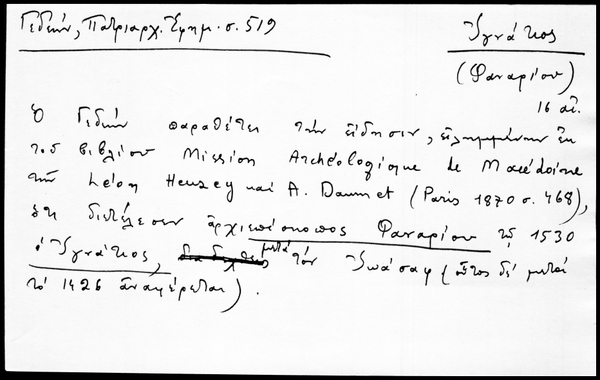 Γεδεών, Πατριαρχ. Ἐφημ. σ. 519
Ἰγνάτιος
(Φαναρίου)
16 αἰ.
Ὁ Γεδεὼν παραθέτει τὴν εἴδησιν, εἰλημμένην ἐκ
τοῦ βιβλίου Mission Archéologique de Macédoine
τῶν Léon Heuzey καὶ A. Daumet (Paris 1870 σ. 468),
ὅτι διετέλεσεν ἀρχιεπίσκοπος Φαναρίου τῷ 1530
ὁ Ἰγνάτιος, μετὰ τὸν Ἰωάσαφ (οὗτος δὲ μετὰ
τὸ 1426 ἀναφέρεται).